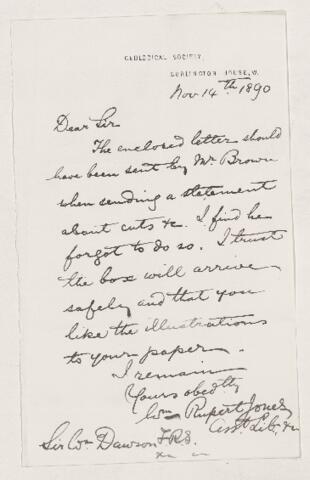 GEOLOGICAL SOCIETY,
BURLINGTON HOUSE, W.
Nov 14th 1890
Dear Sir
The enclosed letter should
have been sent by Mr Brown
when sending a statement
about cuts &c. I find he
forgot to do so. I trust
the box will arrive
safely and that you
like the illustrations
to your paper.
I remain
Yours obedtly
Wm Rupert Jones
Asst Lib. &c
Sir Wm Dawson F.R.S.
&c &c